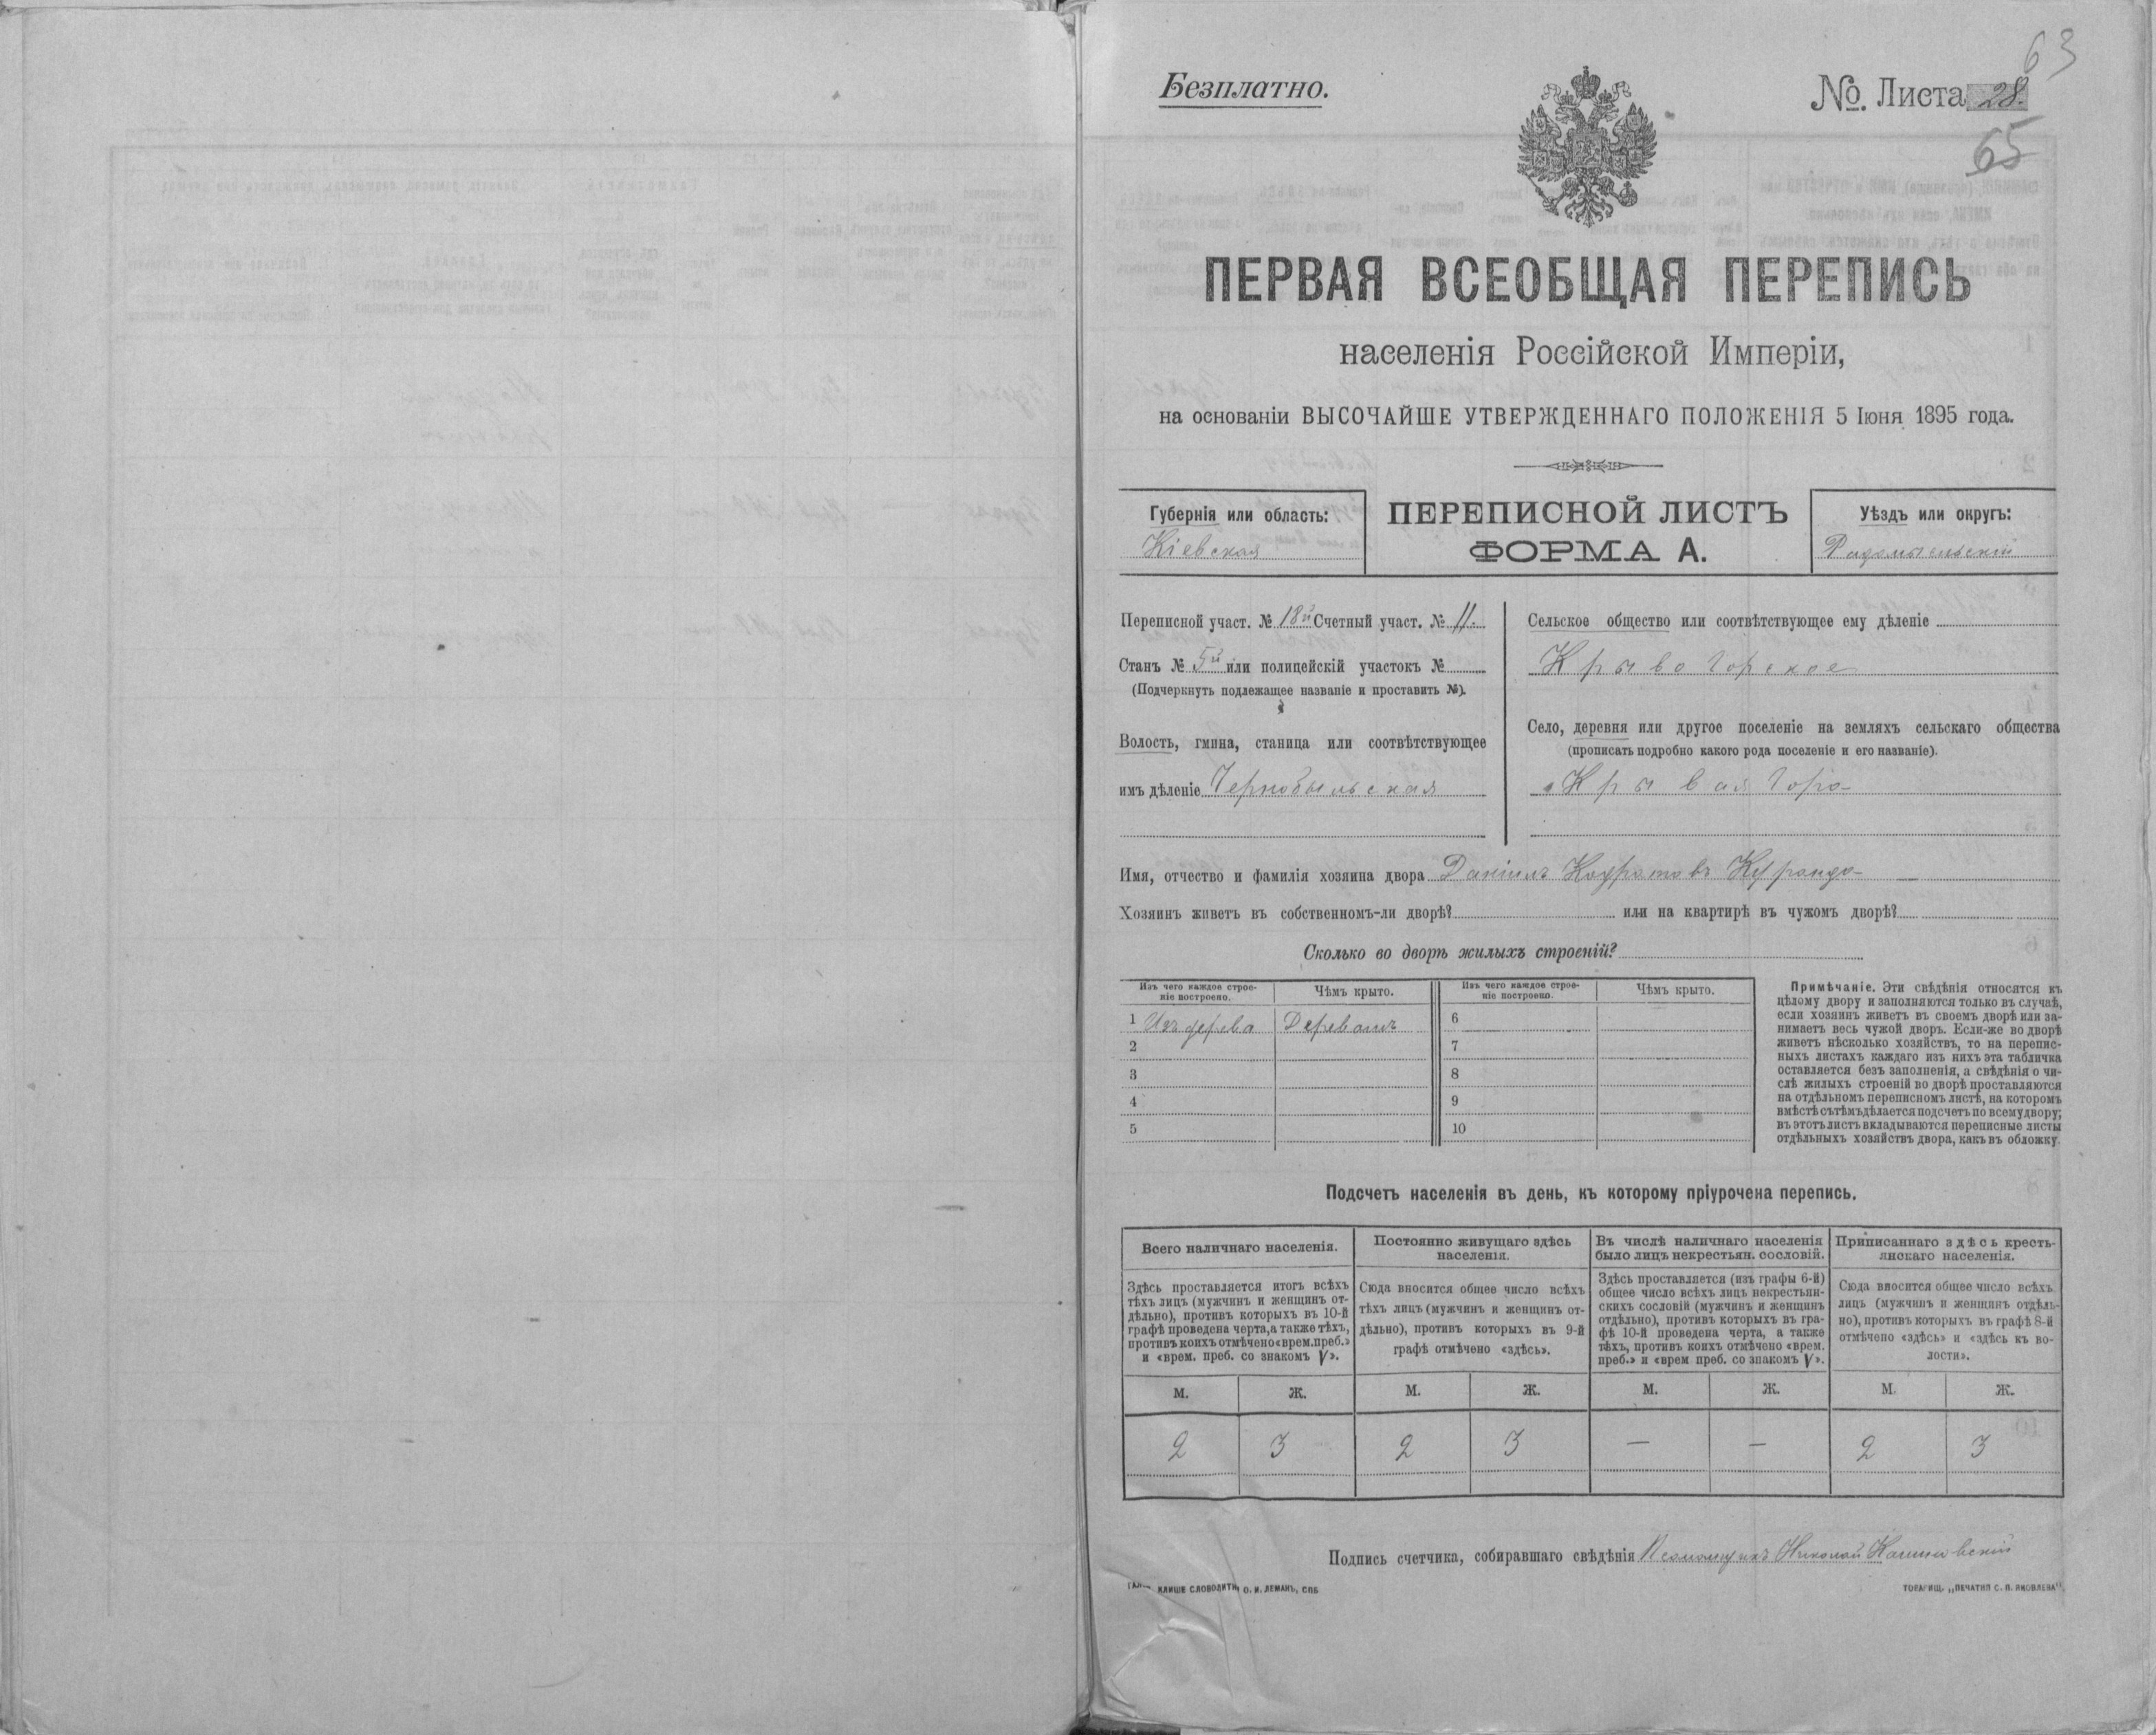 63
Безплатно.
№. Листа 28.
65
ПЕРВАЯ ВСЕОБЩАЯ ПЕРЕПИСЬ
населенія Россійской Имперіи,
на основаніи ВЫСОЧАЙШЕ УТВЕРЖДЕННАГО ПОЛОЖЕНІЯ 5 Іюня 1895 года.
Губернія или область:
Кіевская
ПЕРЕПИСНОЙ ЛИСТЪ
ФОРМА А.
Уѣздъ или округъ:
Радомысльскій
Переписной участ. № 18й Счетный участ. № 11.
Станъ № 5й или полицейскій участокъ №
(Подчеркнуть подлежащее названіе и проставить №).
Волость, гмина, станица или соотвѣтствующее
имъ дѣленіе Чернобыльская
Сельское общество или соотвѣтствующее ему дѣленіе
Крывогорское
Село, деревня или другое поселеніе на земляхъ сельскаго общества
(прописать подробно какого рода поселеніе и его названіе).
Крывая Гора
Имя, отчество и фамилія хозяина двора Даніилъ
Хозяинъ живетъ въ собственномъ-ли дворѣ? или на квартирѣ въ чужомъ дворѣ?
Сколько во дворѣ жилыхъ строеній?
Изъ чего каждое строе-
ніе построено.
Чѣмъ крыто.
Изъ чего каждое строе-
ніе построено.
Чѣмъ крыто.
1 Изъ дерева Деревомъ 6
2 7
3 8
4 9
5 10
Примѣчаніе. Эти свѣдѣнія относятся къ
цѣлому двору и заполняются только въ случаѣ,
если хозяинъ живетъ въ своемъ дворѣ или за-
нимаетъ весь чужой дворъ. Если-же во дворѣ
живетъ нѣсколько хозяйствъ, то на перепис-
ныхъ листахъ каждаго изъ нихъ эта табличка
оставляется безъ заполненія, а свѣдѣнія о чи-
слѣ жилыхъ строеній во дворѣ проставляются
на отдѣльномъ переписномъ листѣ, на которомъ
вмѣстѣ съ тѣмъ дѣлается подсчетъ по всему двору;
въ этотъ листъ вкладываются переписные листы
отдѣльныхъ хозяйствъ двора, какъ въ обложку.
Подсчетъ населенія въ день, къ которому пріурочена перепись.
Всего наличнаго населенія.
Постоянно живущаго здѣсь
населенія.
Въ числѣ наличнаго населенія
было лицъ некрестьян. сословій.
Приписаннаго здѣсь кресть-
янскаго населенія.
Здѣсь проставляется итогъ всѣхъ
тѣхъ лицъ (мужчинъ и женщинъ от-
дѣльно), противъ которыхъ въ 10-й
графѣ проведена черта, а также тѣхъ,
противъ коихъ отмѣчено «врем. преб.»
и «врем. преб. со знакомъ V».
Сюда вносится общее число всѣхъ
тѣхъ лицъ (мужчинъ и женщинъ от-
дѣльно), противъ которыхъ въ 9-й
графѣ отмѣчено «здѣсь».
Здѣсь проставляется (изъ графы 6-й)
общее число всѣхъ лицъ некрестьян-
скихъ сословій (мужчинъ и женщинъ
отдѣльно), противъ которыхъ въ гра-
фѣ 10-й проведена черта, а также
тѣхъ, противъ коихъ отмѣчено «врем.
преб.» и «врем преб. со знакомъ V».
Сюда вносится общее число всѣхъ
лицъ (мужчинъ и женщинъ отдѣль-
но), противъ которыхъ въ графѣ 8-й
отмѣчено «здѣсь» и «здѣсь къ во-
лости».
М. Ж. М. Ж. М. Ж. М. Ж.
2 3 2 3 — — 2 3
Подпись счетчика, собиравшаго свѣдѣнія Псаломщикъ Николай
КЛИШЕ СЛОВОЛИТН. О. И. ЛЕМАНЪ, СПБ
ТОВАРИЩ. „ПЕЧАТНЯ С. П. ЯКОВЛЕВА“.